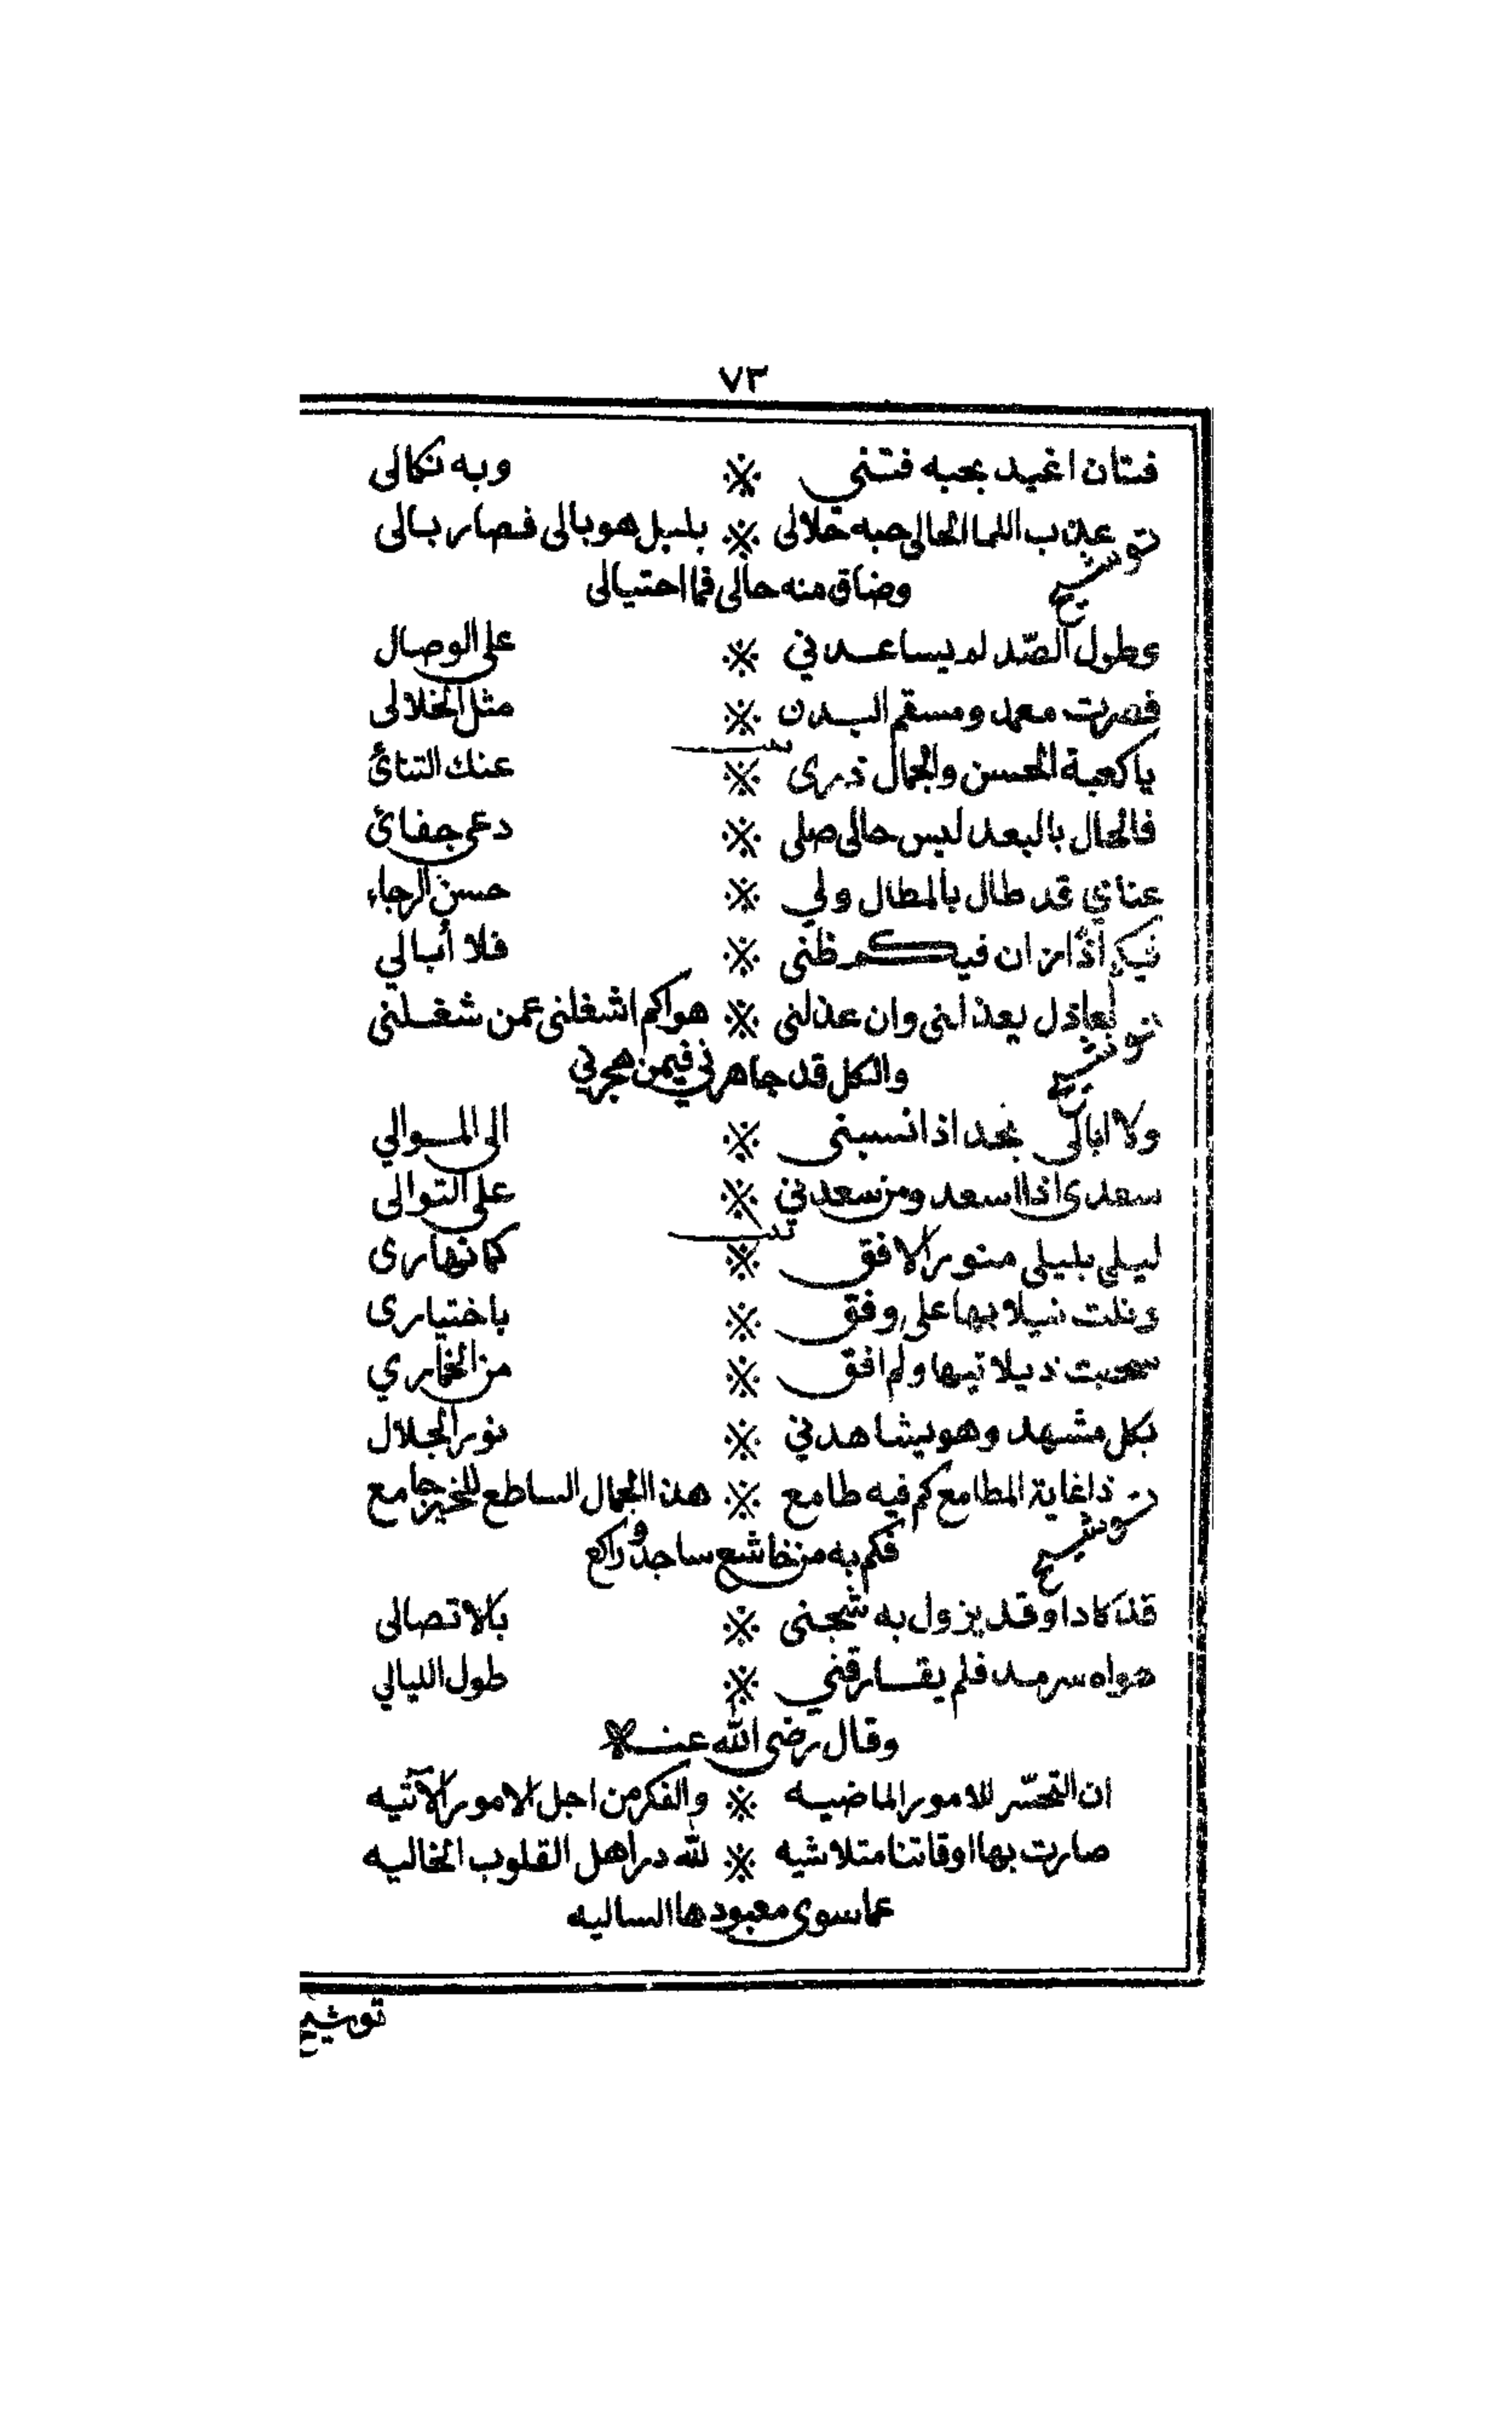 ٧٣
فتان اغيد بحبه فتننى ※ وبه نكالى
توشيح عذب اللما الحالى حبه حلالى ※ بلبل هو بالى فصار بالى
وضاق منه حالى فما احتيالى
وطول الصّد لم يساعدني ※ على الوصال
فصرت معمد ومسقم البدن ※ مثل الخلالى
يا كعبة الحسن والجمال ذرى ※ عنك التنائ
فالحال بالبعد ليس حالى صلى ※ دعى جفائ
عنائي قد طال بالمطال ولي ※ حسن الرجاء
ان فيكم ظنى ※ فلا أبالي
توشيح لعاذل يعذلنى وان عذلنى ※ هواكم اشغلنى عمن شغلنى
والكل قد جاهرني فيمن هجرني
ولا ابالى بجد اذا نسبنى ※ الى الموالي
سعدى اذا اسعد ومن سعدني ※ على التوالى
ليلى بليلى منور الافق ※ كما نهارى
ونلت نيلا بها على وفق ※ باختيارى
سحبت ذيلا تيها ولم افق ※ من الخماري
بكل مشهد وهو يشاهدني ※ نور الجلال
توشيح ذا غاية المطامع كم فيه طامع ※ هذا الجمال الساطع للخير جامع
فكم به من خاشع ساجد وراكع
قد كادا وقد يزول به شجنى ※ بالاتصالى
هواه سرمد فلم يفارقني ※ طول الليالي
وقال رضى الله عنه
ان التحسّر للامور الماضيه ※ والفكر من اجل الامور الآتيه
صارت بها اوقاتنا متلاشيه ※ لله در اهل القلوب الخاليه
عما سوى معبودها الساليه
توشيح